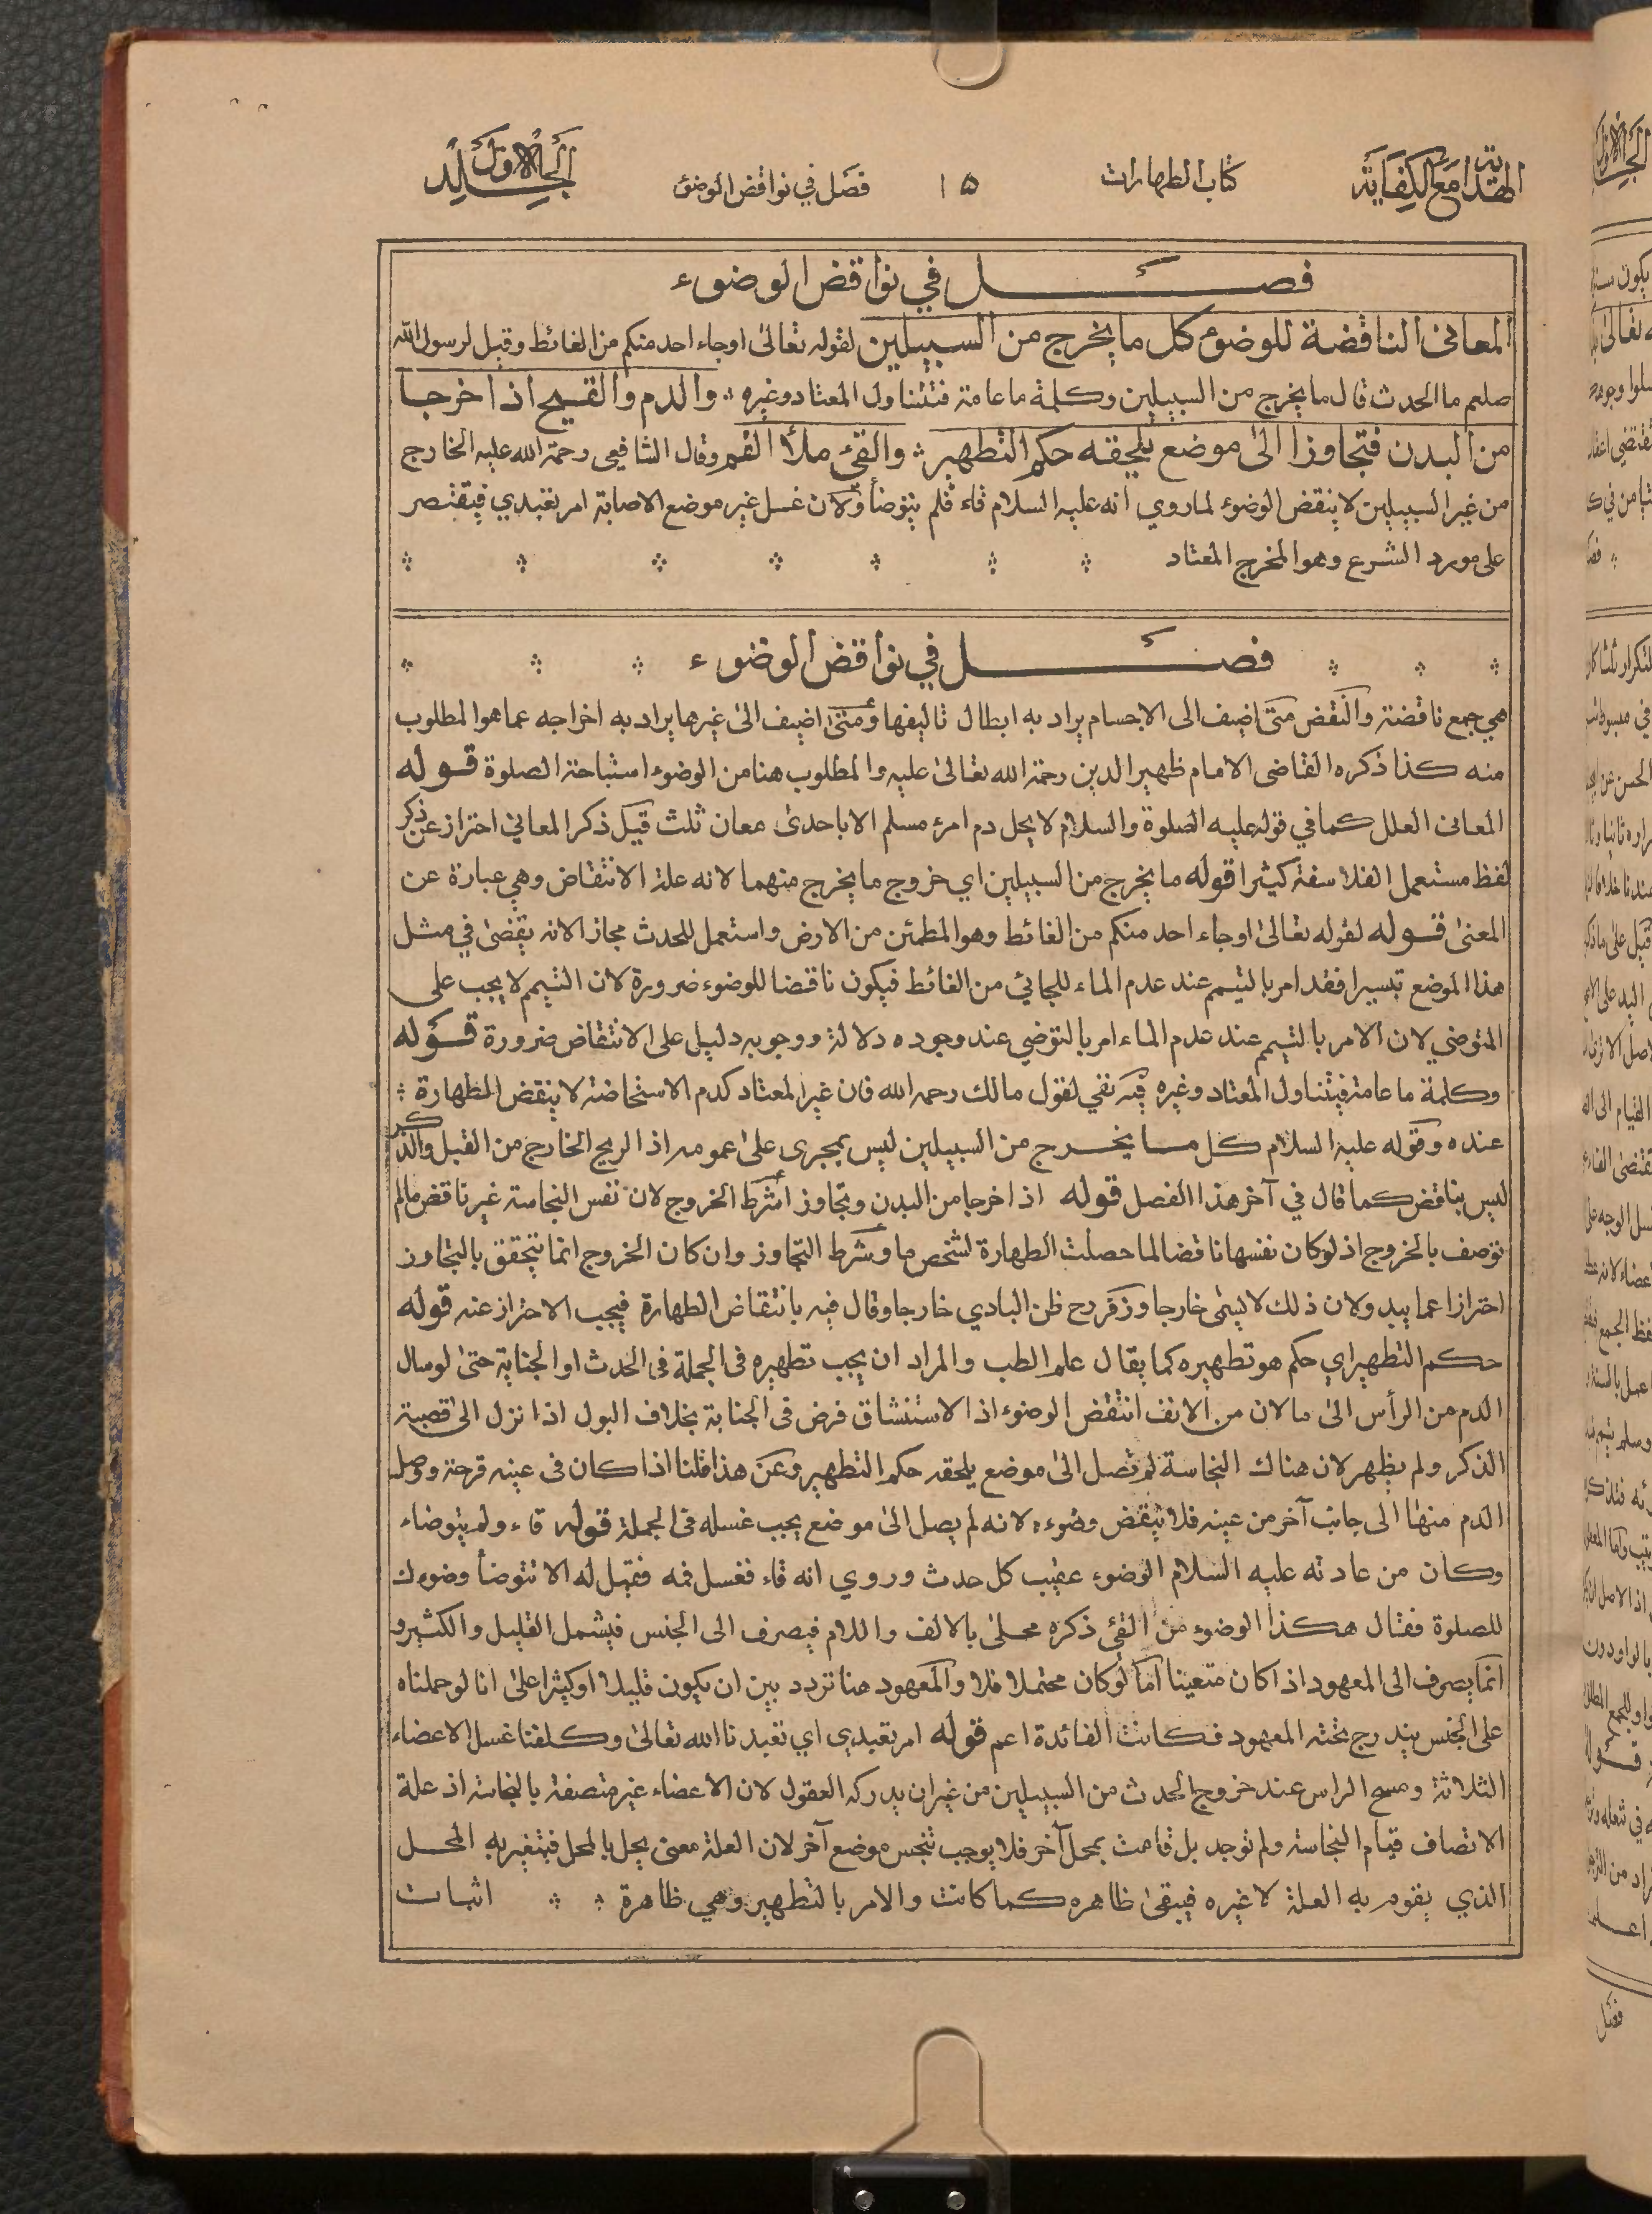 الهداية مع الكفاية
كتاب الطهارات
١٥
فصل في نواقض الوضوء
الجلد الاول
فصل في نواقض الوضوء
المعانى الناقضة للوضوء كل ما يخرج من السبيلين لقوله تعالى اوجاء احد منكم من الغائط وقيل لرسول الله
صلعم ما الحدث قال ما يخرج من السبيلين وكلمة ما عامة فتتناول المعتاد وغيره والدم والقيح اذا خرجا
من البدن فتجاوزا الى موضع يلحقه حكم التطهير والقئ ملأ الفم وقال الشافعى رحمة الله عليه الخارج
من غير السبيلين لا ينقض الوضوء لما روي انه عليه السلام قاء فلم يتوضأ ولان غسل غير موضع الاصابة امر تعبدي فيقتصر
على مورد الشرع وهو المخرج المعتاد
فصل في نواقض الوضوء
هي جمع ناقضة والنقض متى اضيف الى الاجسام يراد به ابطال تاليفها ومتى اضيف الى غيرها يراد به اخراجه عما هو المطلوب
منه كذا ذكره القاضى الامام ظهير الدين رحمة الله تعالى عليه والمطلوب هنا من الوضوء استباحة الصلوة قوله
المعانى العلل كما في قوله عليه الصلوة والسلام لا يحل دم امرء مسلم الا باحدى معان ثلث قيل ذكر المعاني احتراز عن ذكر
لفظ مستعمل الفلاسفة كثيرا قوله ما يخرج من السبيلين اي خروج ما يخرج منهما لانه علة الانتقاض وهي عبارة عن
المعنى قوله لقوله تعالى اوجاء احد منكم من الغائط وهو المطمئن من الارض واستعمل للحدث مجازا لانه يقضى في مثل
هذا الموضع تيسيرا فقد امر بالتيمم عند عدم الماء للجائي من الغائط فيكون ناقضا للوضوء ضرورة لان التيمم لا يجب على
المتوضي لان الامر بالتيمم عند عدم الماء امر بالتوضي عند وجوده دلالة ووجوبه دليل على الانتقاض ضرورة قوله
وكلمة ما عامة فيتناول المعتاد وغيره فيه نفي لقول مالك رحمه الله فان غير المعتاد كدم الاستحاضة لا ينقض الطهارة
عنده وقوله عليه السلام كل ما يخرج من السبيلين ليس بمجرى على عمومه اذ الريح الخارج من القبل والذكر
ليس بناقض كما قال في آخر هذا الفصل قوله اذا خرجا من البدن وتجاوز اشرط الخروج لان نفس النجاسة غير ناقض ما لم
توصف بالخروج اذ لو كان نفسها ناقضا لما حصلت الطهارة لشخص ما وشرط التجاوز وان كان الخروج انما يتحقق بالتجاوز
احترازا عما يبد ولان ذلك لا يسمى خارجا وزفر رح ظن البادي خارجا وقال فيه بانتقاض الطهارة فيجب الاحتراز عنه قوله
حكم التطهير اي حكم هو تطهيره كما يقال علم الطب والمراد ان يجب تطهيره فى الجملة فى الحدث او الجنابة حتى لو سال
الدم من الرأس الى ما لان من الانف انتقض الوضوء اذ الاستنشاق فرض فى الجنابة بخلاف البول اذا نزل الى قصبة
الذكر ولم يظهر لان هناك النجاسة لم تصل الى موضع يلحقه حكم التطهير وعن هذا قلنا اذا كان فى عينه قرحة ووصل
الدم منها الى جانب آخر من عينه فلا ينقض وضوءه لانه لم يصل الى موضع يجب غسله فى الجملة قوله قاء ولم يتوضاء
وكان من عادته عليه السلام الوضوء عقيب كل حدث وروي انه قاء فغسل فمه فقيل له الا تتوضأ وضوءك
للصلوة فقال هكذا الوضوء من القئ ذكره محلى بالالف واللام فيصرف الى الجنس فيشمل القليل والكثير و
انما يصرف الى المعهود اذا كان متعينا اما لو كان محتملا فلا والمعهود هنا تردد بين ان يكون قليلا او كثيرا على انا لو حملناه
على الجنس يندرج تحته المعهود فكانت الفائدة اعم قوله امر تعبدي اي تعبدنا الله تعالى وكلفنا غسل الاعضاء
الثلاثة ومسح الراس عند خروج الحدث من السبيلين من غير ان يدركه العقول لان الاعضاء غير متصفة بالنجاسة اذ علة
الاتصاف قيام النجاسة ولم توجد بل قامت بمحل آخر فلا يوجب تنجس موضع آخر لان العلة معنى يحل بالمحل فيتغير به المحل
الذي يقوم به العلة لا غيره فيبقى ظاهره كما كانت والامر بالتطهير وهي ظاهرة اثبات